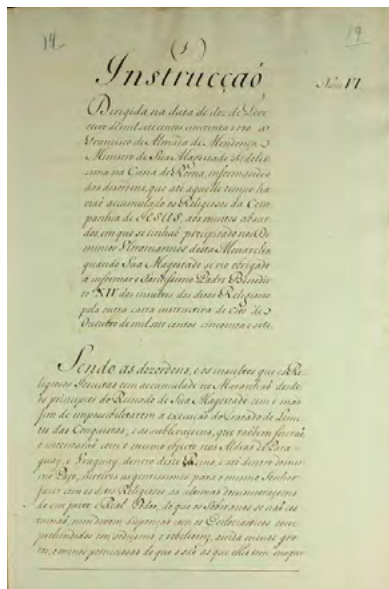 14
19
(1)
Instrucçaõ
Num VI
Dirigida na data de dez de Feve
reiro de mil sete centos cincoenta e oito a
Francisco de Almada de Mendonça
Ministro de Sua Magestade Fidelis
sima na Curia de Roma, informando o
das desordens, que até aquelle tempo ha
viaõ accumulado os Religiosos da Com
panhia de JESUS, aos muitos absur
dos em que se tinhaõ precipitado nos Do
minios Ultramarinos desta Monarchia
quando Sua Magestade se vio obrigado
a informar o Santissimo Padre Benedi
cto XIV dos insultos dos ditos Religiosos
pela outra carta instructiva de oito de
Outubro de mil sete centos cincoenta e sete.
Sendo as dezordens, e os insultos que os Re
ligiosos Jesuitas tem accumulado no Maranhaõ desde
os principios do Reinado de Sua Magestade com o máo
fim de impossibilitarem a execuçaõ do Tratado de Limi
tes das Conquistas, e as sublevaçoens, que
com o mesmo objecto nas Aldeas do Para
guay, e Uraguay, dentro deste Reino, e até dentro do mes
mo Paço, motivos urgentissimos para o mesmo Senhor
fazer com os ditos Religiosos as
do seu pio e Real Poder, de que os Soberanos se naõ cos
tumaõ, nem devem dispensar com os Ecclesiasticos com
prehendidos em sediçoens, e rebelioens, ainda menos gra
ves, e menos perniciosas do que o saõ as que elles tem